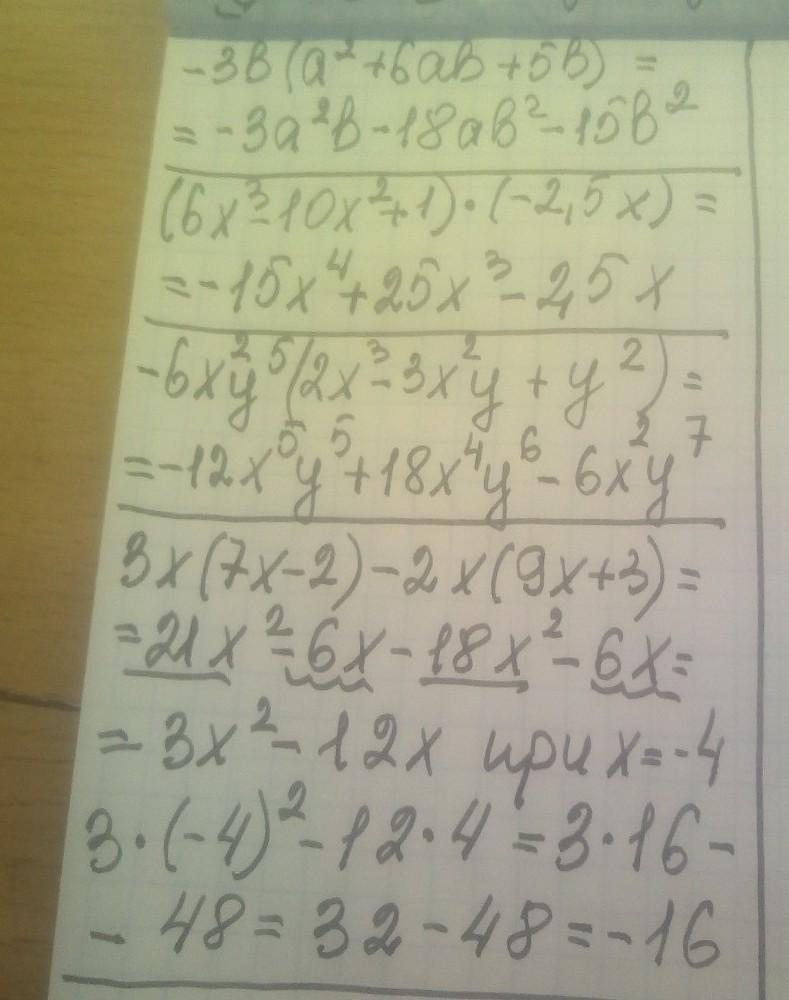 -3b(a²+6ab+5b)=
=-3a²b-18ab²-15b²
(6x³-10x²+1)·(-2,5x)=
=-15x⁴+25x³-2,5x
-6x²y⁵(2x³-3x²y+y²)=
=-12x⁵y⁵+18x⁴y⁶-6x²y⁷
3x(7x-2)-2x(9x+3)=
=21x²-6x-18x²-6x=
=3x²-12x при x=-4
3·(-4)²-12·4=3·16-
-48=32-48=-16